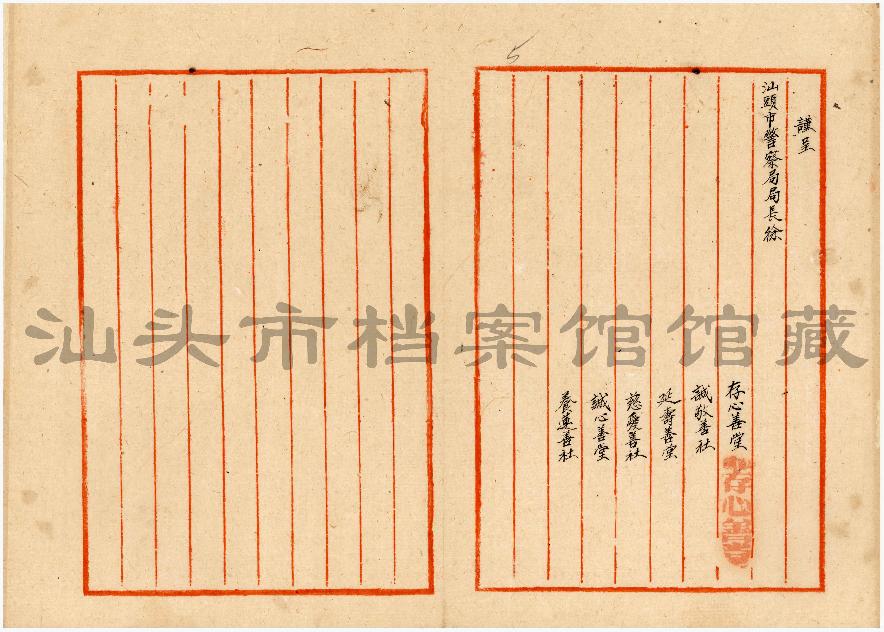 5
謹呈
汕頭市警察局局長徐
存心善堂
誠敬善社
延壽善堂
慈愛善社
誠心善堂
養蓮善社
存心善堂
汕头市档案馆馆藏